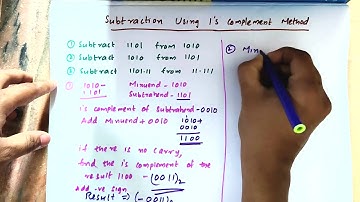 Subtraction Using 1's Complement Method
① Subtract 1101 from 1010
② Subtract 1010 from 1101
③ Subtract 1101.11 from 11.111
① 1010 - Minuend - 1010
1101 Subtrahend - 1101
1's complement of Subtrahend - 0010
Add Minuend + 0010 1010 +
0010
1100
if there is no carry,
find the 1's complement of the
result 1100 - (0011)₂
Add -ve sign
Result => (-0011)₂
② Min